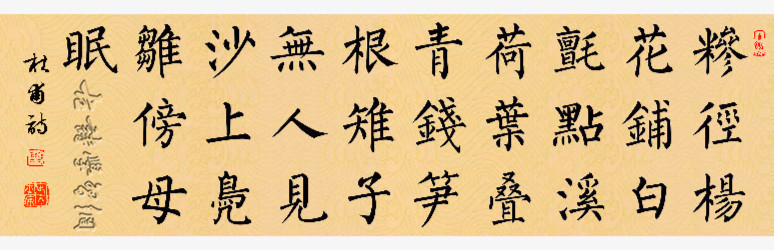 糝徑楊
花鋪白
氈點溪
荷葉叠
青錢笋
根雉子
無人見
沙上鳧
雛傍母
眠
杜甫詩